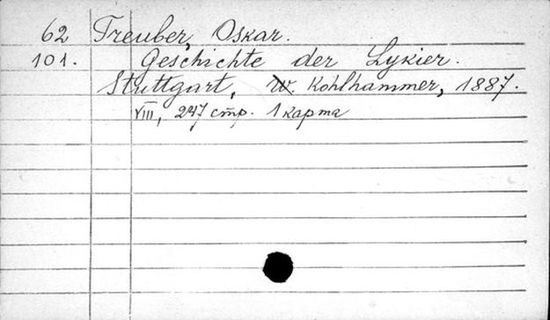 62 Treuber, Oskar.
101. Geschichte der Lykier.
Stuttgart, W. Kohlhammer, 1887.
VIII, 247 стр. 1 карта